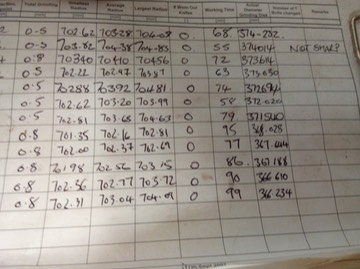 Total Grinding Smallest Radius Average Radius Largest Radius # Worn Out Knives Working Time Actual Diameter Grinding Tool Number of T Bolts changed Remarks
0.5 702.62 703.28 704.08 0 68 374.232
0.5 703.82 704.38 704.83 0 55 374014 NOT SHARP?
0.8 70340 70410 70456 0 72 373614
0.5 702.22 702.97 0 63
0.5 70288 70392 70481 0 74 372694
0.5 702.62 703.20 703.99 0 58 372.020
0.5 702.81 703.68 704.63 0 79 371540
0.8 701.35 702.16 702.81 0 95 368.028
0.8 702.00 702.37 702.69 0 77 367.644
0.8 70198 702.56 703.15 0 86 367.188
0.8 702.36 702.77 703.72 0 90 366 610
0.8 702.31 703.04 704.09 0 99 366 234